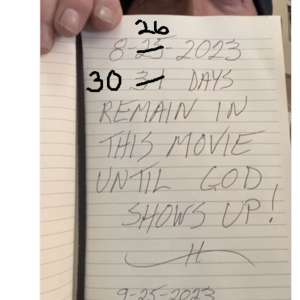 26
8-25-2023
30 31 DAYS
REMAIN IN
THIS MOVIE
UNTIL GOD
SHOWS UP!
H
9-25-2023